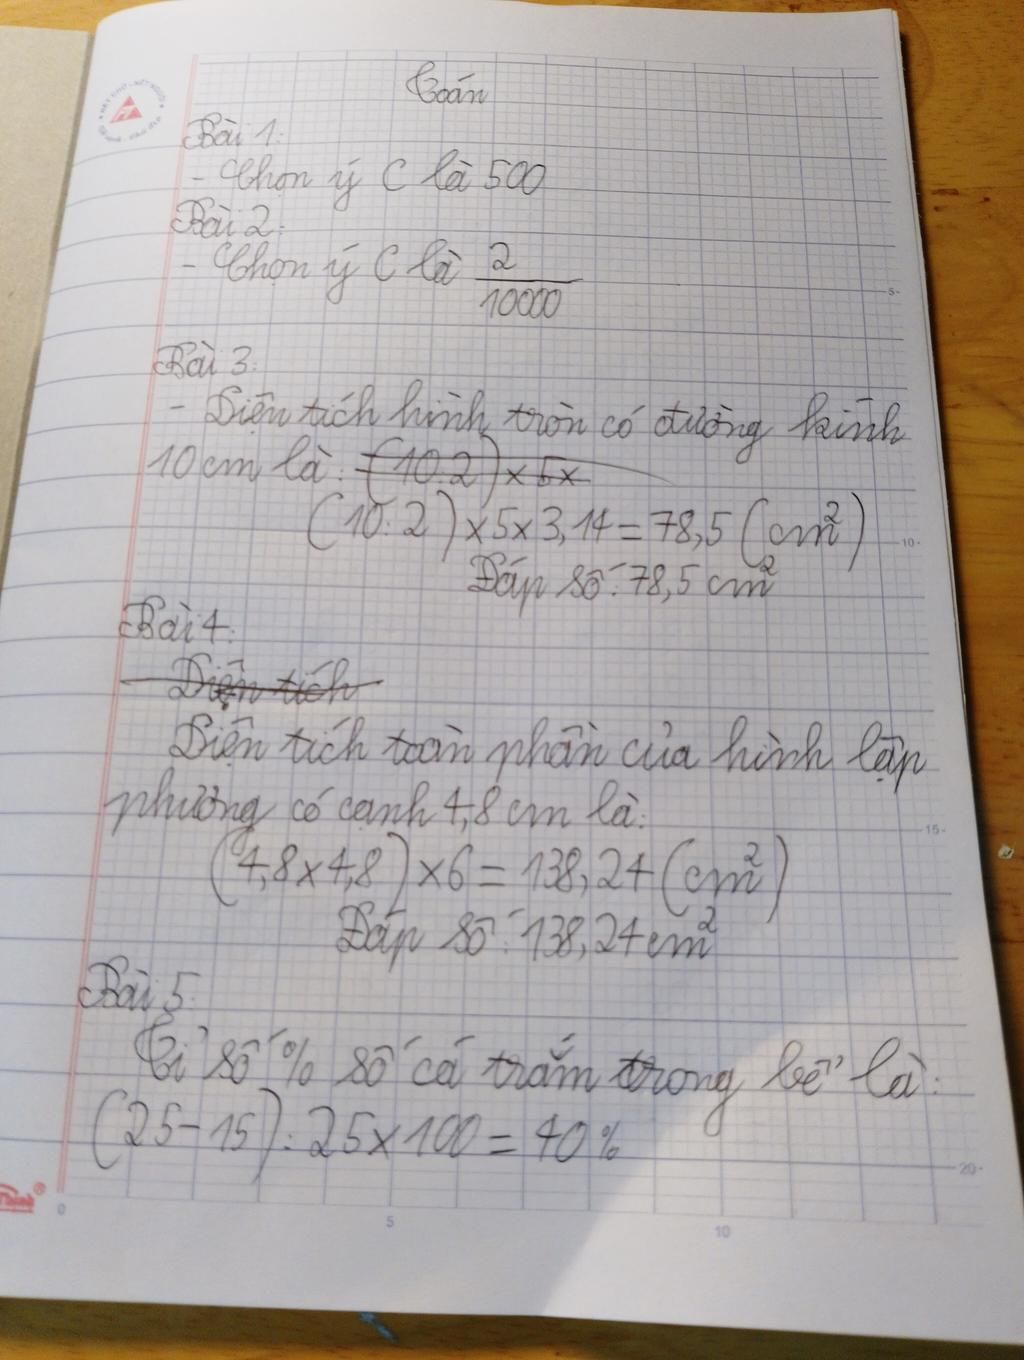 Toán
Bài 1:
- Chọn ý C là 500
Bài 2:
- Chọn ý C là 2/10000
Bài 3:
- Diện tích hình tròn có đường kính
10 cm là: (10:2) x 5 x
(10:2) x 5 x 3,14 = 78,5 (cm²)
Đáp số: 78,5 cm²
Bài 4:
Diện tích
Diện tích toàn phần của hình lập
phương có cạnh 4,8 cm là:
(4,8 x 4,8) x 6 = 138,24 (cm²)
Đáp số: 138,24 cm²
Bài 5:
Tỉ số % số cá trắm trong bể là:
(25 - 15) : 25 x 100 = 40%
5
10
15
20
0
5
10